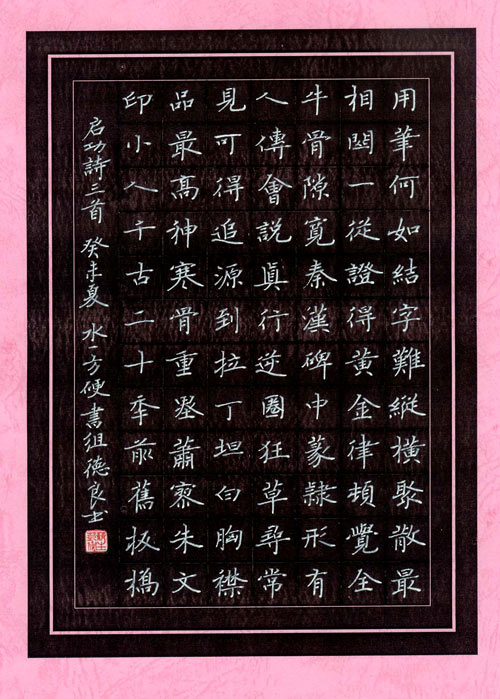 用筆何如結字難縱橫聚散最
相関一從證得黃金律頓覺全
牛骨隙寬秦漢碑中篆隸形有
人傳會說眞行逆圈狂草尋常
見可得追源到拉丁坦白胸襟
品最高神寒骨重墨蕭寥朱文
印小人千古二十秊前舊板橋
启功詩三首 癸未夏 水一方硬書組德良士